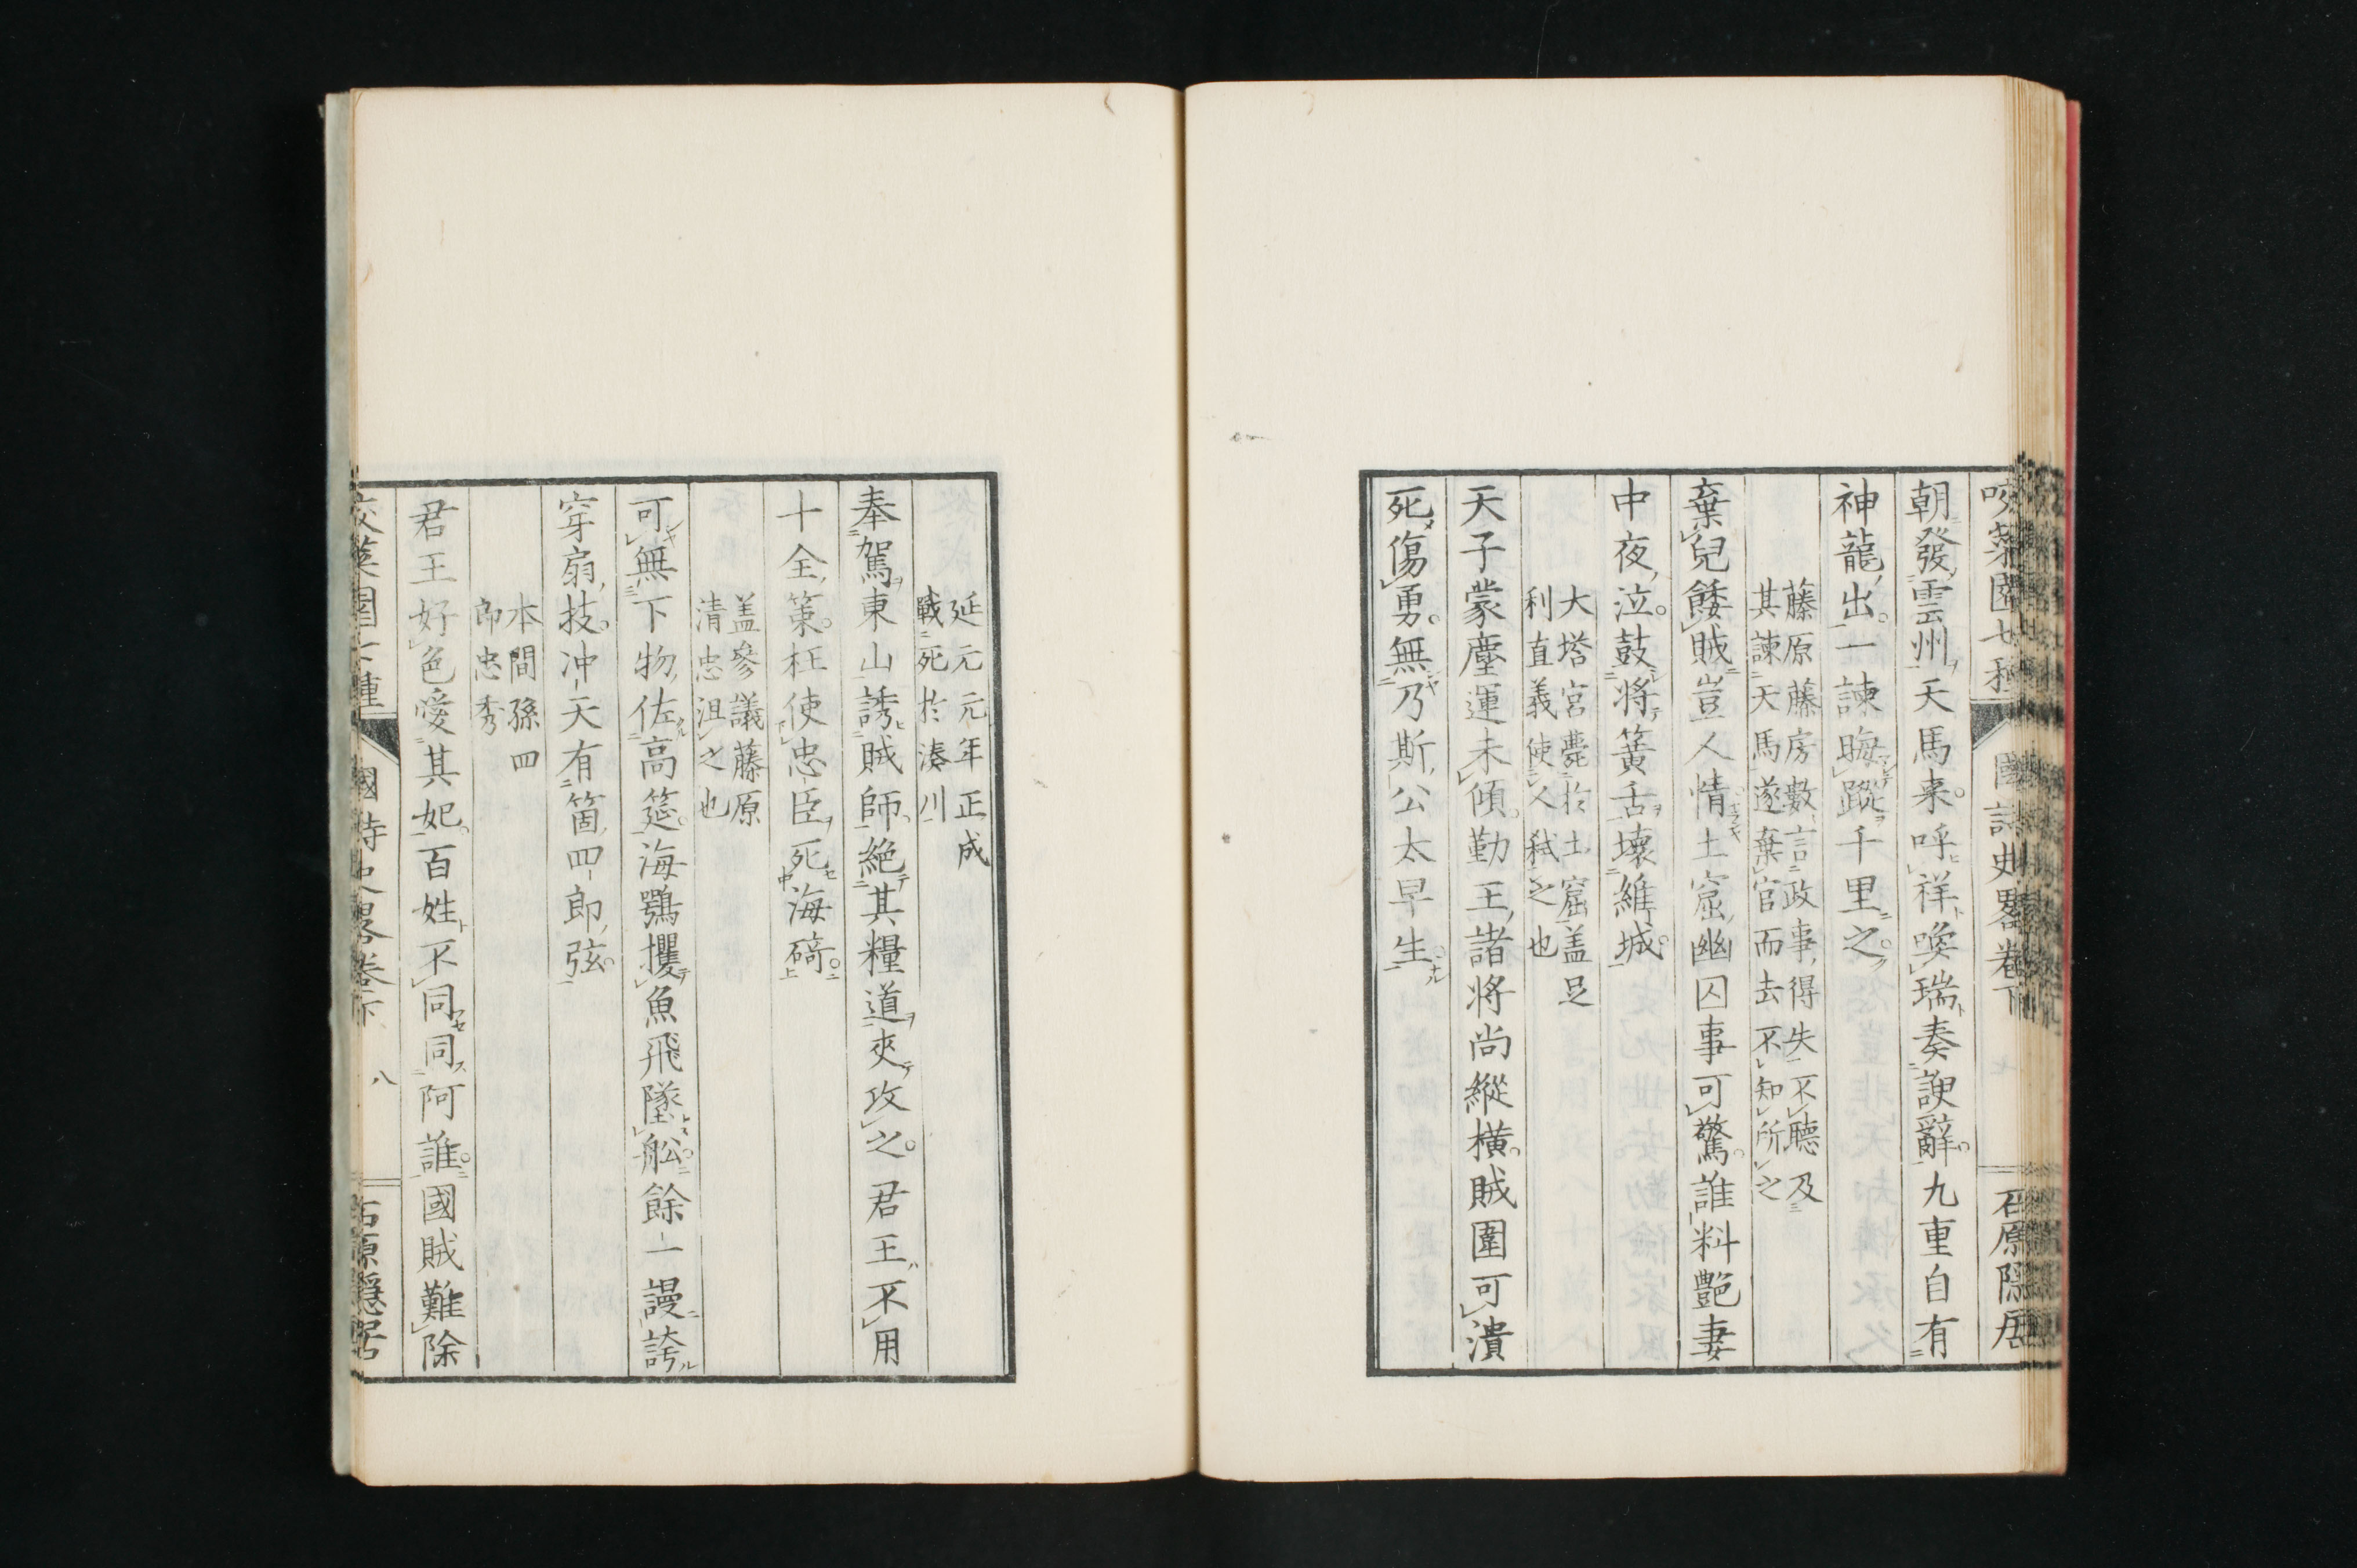 國詩史畧卷下
石原隱居
朝發雲州天馬来呼祥喚瑞奏諛辭九重自有
神龍出一諫晦蹤千里之
藤原藤房數言政事得失不聽及
其諫天馬遂棄官而去不知所之
棄兒餧賊豈人情土窟幽囚事可驚誰料艶妻
中夜泣鼓將簧舌壞維城
大塔宮薨於土窟盖足
利直義使人弑之也
天子蒙塵運未傾勤王諸将尚縱橫賊圍可潰
死傷勇無乃斯公太早生
延元元年正成
戰死於湊川
奉駕東山誘賊師絶其糧道夾攻之君王不用
十全策枉使忠臣死海碕
盖參議藤原
清忠沮之也
可無下物佐高筵海鶚攫魚飛墜舩餘一謾誇
穿扇技冲天有箇四郎弦
本間孫四
郎忠秀
君王好色愛其妃百姓不同同阿誰國賊難除
國詩史畧卷下
八
石原隱居